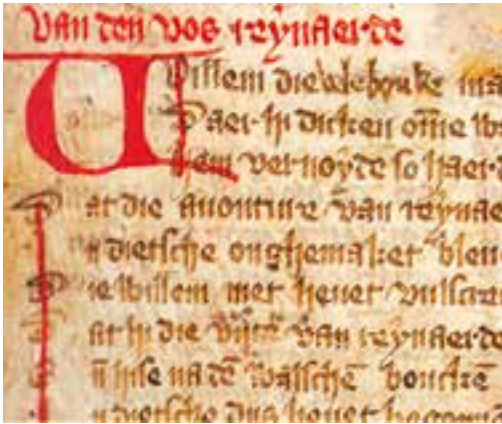 van den vos reynaerde
Willem die vele bouke ma
Daer hi dicken om̄e w
hem vernoyde so haer
Dat die auonture van reynae
In dietsche onghemaket bleu
Die willem niet heuet vulscre
Dat hi die vijte van reynaerde
En̄ hise na dē walschē bouckē
In dietsche dus heuet begonnē